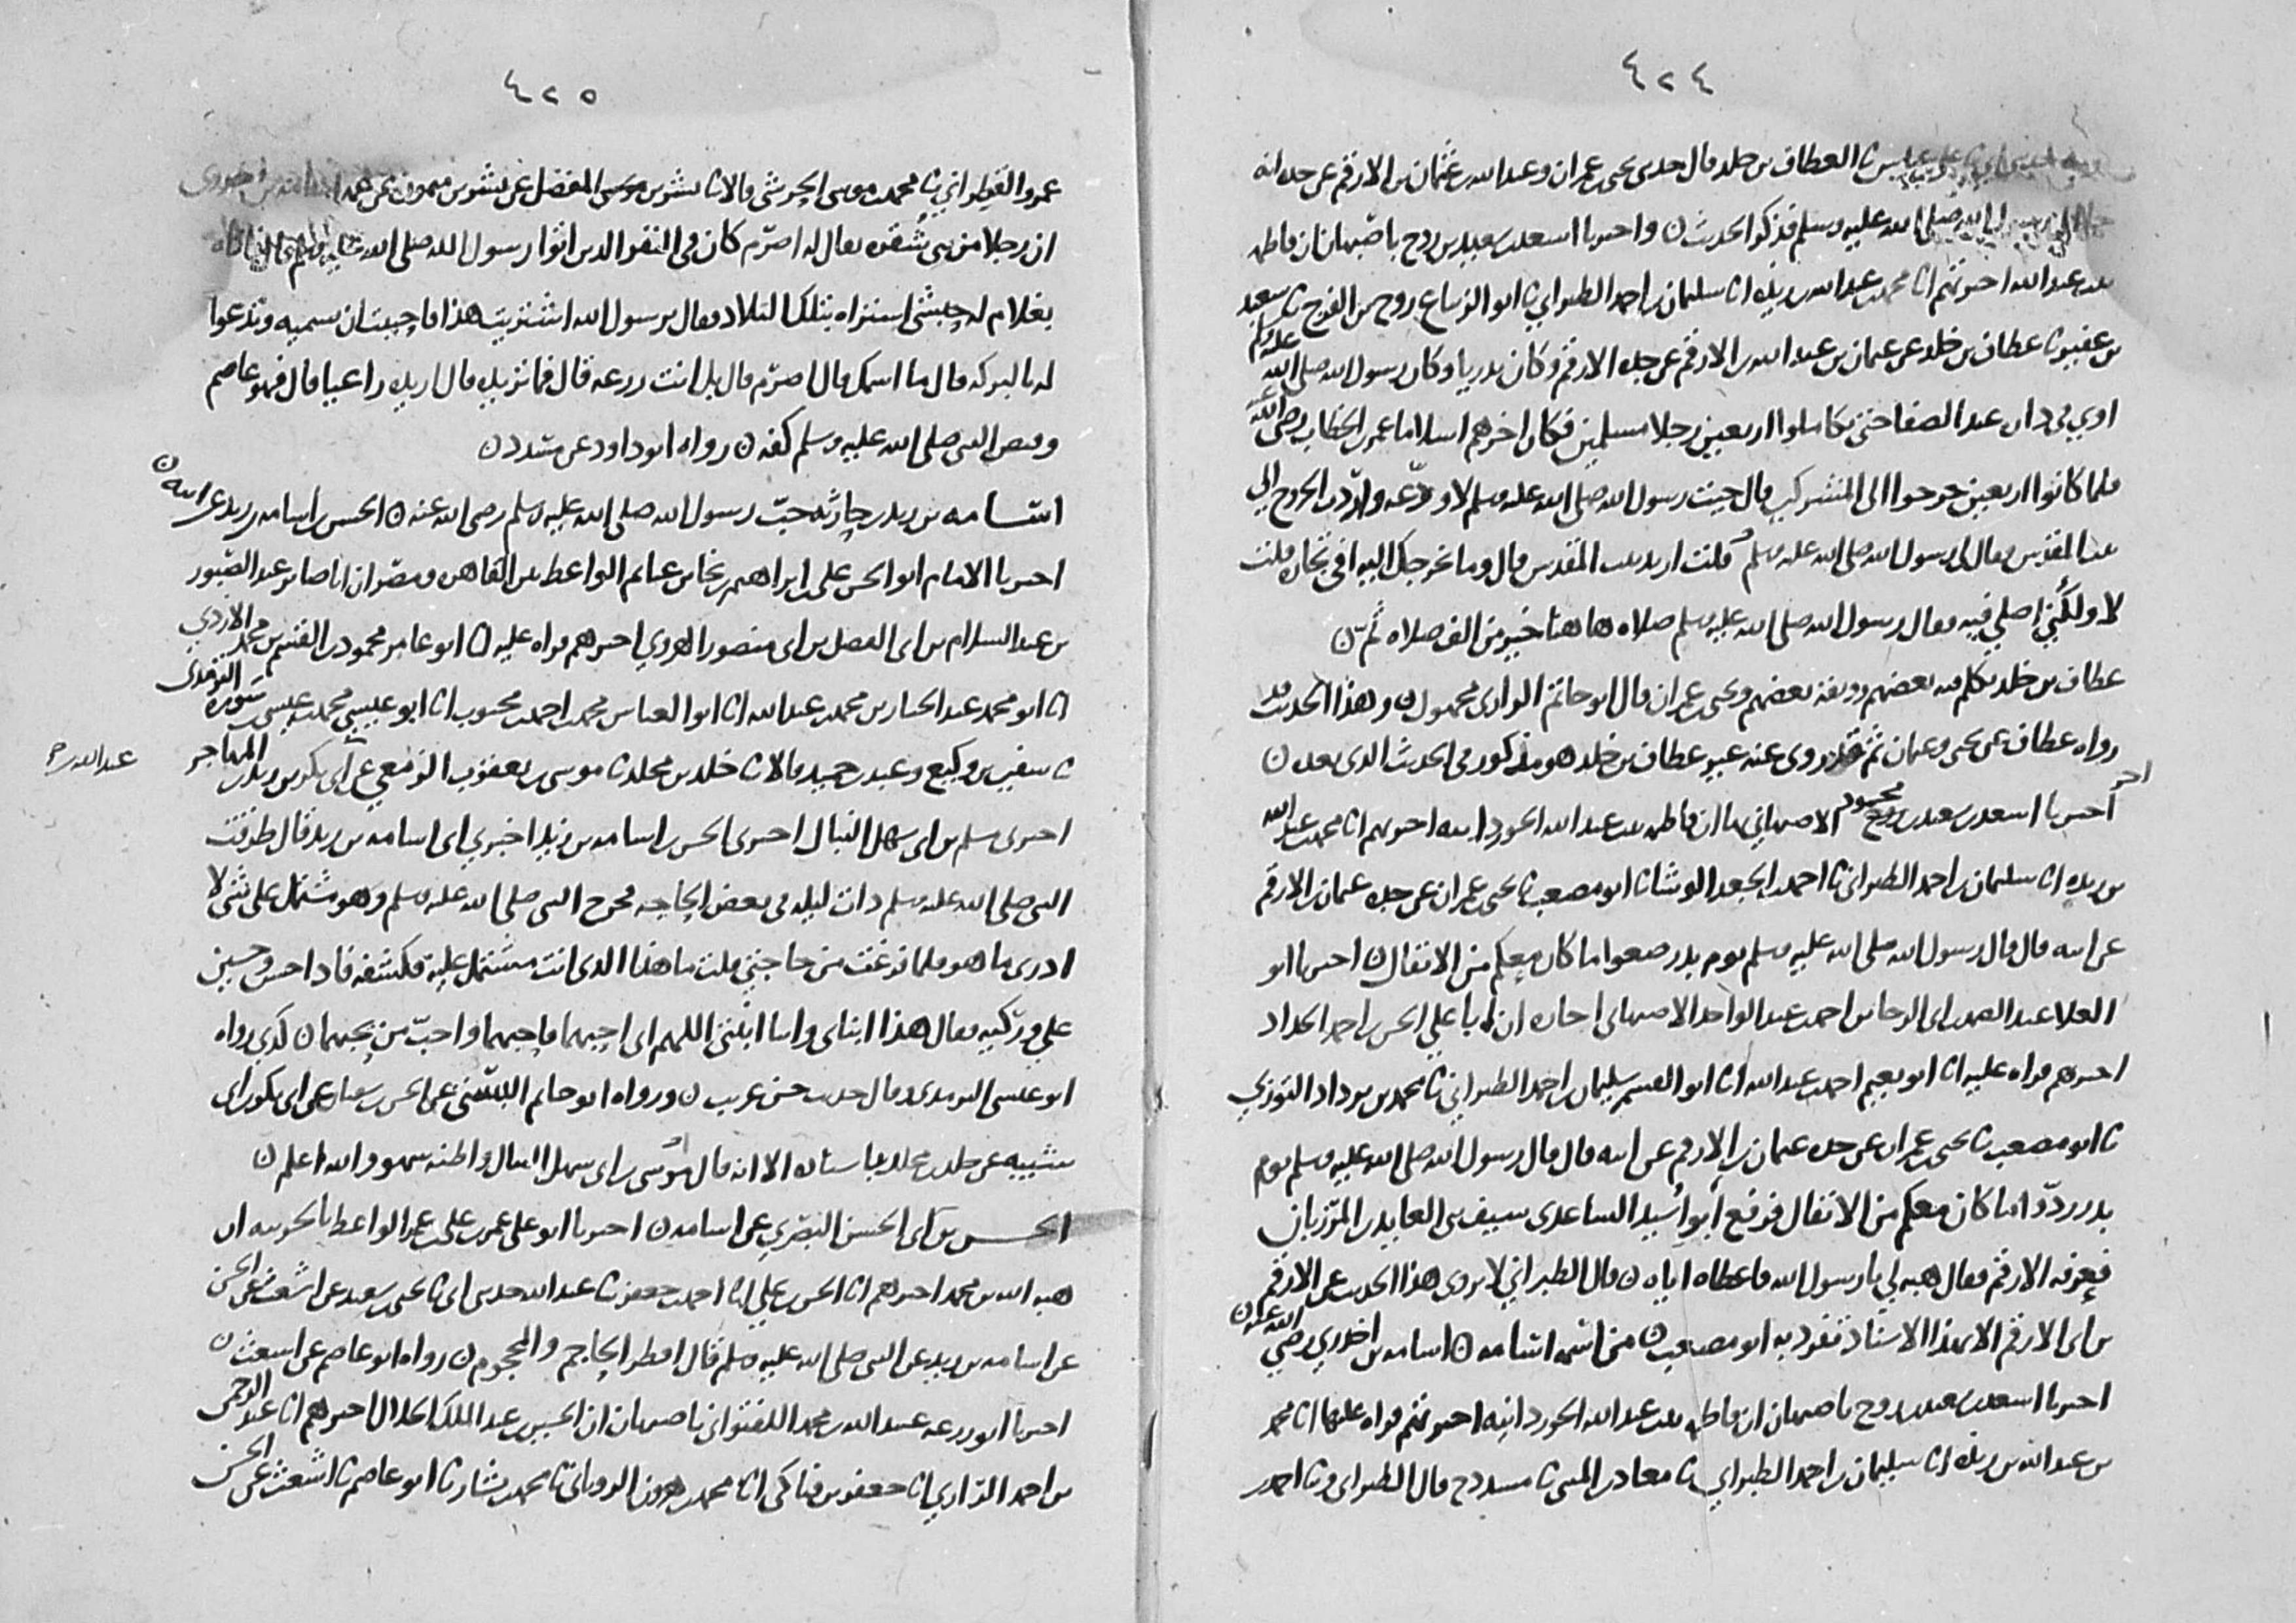 ٤٢٤
العطاف بن خلد قال حدثني يحيى بن عمران وعبد الله بن عثمان بن الارقم عن جده انه
صلى الله عليه وسلم فذكر الحديث ن واخبرنا اسعد بن سعيد بن روح باصبهان ان فاطمه
بنت عبد الله اخبرتهم انا محمد بن عبد الله بن ريذه انا سليمان بن احمد الطبراني نا ابو الزنباع روح بن الفرج نا سعيد
بن عفير نا عطاف بن خلد عن عثمان بن عبد الله بن الارقم عن جده الارقم وكان بدريا وكان رسول الله صلى الله عليه وسلم
اوى في داره عند الصفا حتى تكاملوا اربعين رجلا مسلمين فكان اخرهم اسلاما عمر بن الخطاب رضي الله عنه
فلما كانوا اربعين خرجوا الى المشركين قال جيت رسول الله صلى الله عليه وسلم لاودّعه واردت الخروج الى
بيت المقدس فقال لى رسول الله صلى الله عليه وسلم قلت اريد بيت المقدس قال وما يخرجك اليه افي تجاره قلت
لا ولكني اصلي فيه فقال رسول الله صلى الله عليه وسلم صلاه هاهنا خير من الف صلاه ثم ن
عطاف بن خلد تكلم فيه بعضهم ووثقه بعضهم ويحيى بن عمران قال ابو حاتم الرازى مجهول ن وهذا الحديث قد
رواه عطاف عن يحيى وعثمان ثم قد روى عنه غير عطاف بن خلد هو مذكور في الحديث الذى بعده ن
اخر
اخبرنا اسعد بن سعيد بن محمود روح الاصبهاني بها ان فاطمه بنت عبد الله الجوزدانيه اخبرتهم انا محمد بن عبد الله
بن ريذه انا سليمان بن احمد الطبراني نا احمد بن الجعد الوشا نا ابو مصعب نا يحيى بن عمران عن جده عثمان بن الارقم
عن ابيه قال قال رسول الله صلى الله عليه وسلم يوم بدر ضعوا ما كان معكم من الانفال ن اخبرنا ابو
العلا عبد الصمد بن ابى الرجا بن احمد بن عبد الواحد الاصبهاني اجازه ان ابا علي الحسن بن احمد الحداد
اخبرهم قراه عليه انا ابو نعيم احمد بن عبد الله انا ابو القسم سليمان بن احمد الطبراني نا محمد بن يزداد التوزي
نا ابو مصعب نا يحيى بن عمران عن جده عثمان بن الارقم عن ابيه قال قال رسول الله صلى الله عليه وسلم يوم
بدر ردّوا ما كان معكم من الانفال فرفع أبو أُسيد الساعدى سيف بنى العابد المرزبان
فعرفه الارقم فقال هبه لي يا رسول الله فاعطاه اياه ن قال الطبراني لا يروى هذا الحديث عن الارقم
بن ابى الارقم الا بهذا الاسناد تفرد به ابو مصعب ن من اسمه اسامه ن اسامه بن اخدري رضي الله عنه ن
اخبرنا اسعد بن سعيد بن روح باصبهان ان فاطمه بنت عبد الله الجوزدانيه اخبرتهم قراه عليها انا محمد
بن عبد الله بن ريذه انا سليمان بن احمد الطبراني نا معاذ بن المثنى نا مسدد ح قال الطبرانى ونا احمد بن
٤٢٥
عمرو القطراني نا محمد بن موسى الحرشي قالا نا بشر بن المفضل عن بشير بن ميمون عن
ان رجلا من بنى شقره يقال له اصرم كان فى النفر الذين اتوا رسول الله صلى الله عليه وسلم قال فاتاه
بغلام له حبشي اشتراه بتلك البلاد فقال يرسول الله اشتريت هذا فاحببت ان تسميه وتدعوا
له بالبركه قال ما اسمك قال اصرم قال بل انت زرعه قال فما تريده قال اريده راعيا قال فهو عاصم
وقبض النبى صلى الله عليه وسلم كفه ن رواه ابو داود عن مسدد ن
اسامه بن زيد بن حارثه حبّ رسول الله صلى الله عليه وسلم رضى الله عنه ن الحسن بن اسامه بن زيد عن ابيه ن
اخبرنا الامام ابو الحسن على بن ابراهيم بن نجا بن غنايم الواعظ بين القاهره ومصر ان ابا صابر عبد الصبور
بن عبد السلام بن ابى الفضل بن ابى منصور الهروي اخبرهم قراه عليه انا ابو عامر محمود بن القسم بن محمد الازدي
انا ابو محمد عبد الجبار بن محمد بن عبد الله انا ابو العباس محمد بن احمد بن محبوب انا ابو عيسى محمد بن عيسى بن سوره الترمذى
نا سفين بن وكيع وعبد بن حميد قالا نا خلد بن مخلد نا موسى بن يعقوب الزمعي عن عبد الله بن ابى بكر بن زيد بن المهاجر
اخبرنى مسلم بن ابى سهل النبال اخبرنى الحسن بن اسامه بن زيد اخبرني ابى اسامه بن زيد قال طرقت
النبى صلى الله عليه وسلم ذات ليله فى بعض الحاجه فخرج النبى صلى الله عليه وسلم وهو مشتمل على شى لا
ادرى ما هو فلما فرغت من حاجتي قلت ما هذا الذى انت مشتمل عليه فكشفه فاذا حسن وحسين
على وركيه فقال هذا ابناى وابنا ابنتى اللهم انى احبهما فاحبهما واحبّ من يحبهما ن كذى رواه
ابو عيسى الترمذى وقال حديث حسن غريب ن ورواه ابو حاتم البستي عن الحسن بن سفيان عن ابى بكر بن ابى
شيبه عن خلد بن مخلد باسناده الا انه قال موسى بن ابى سهل النبال واظنه سهوا والله اعلم ن
الحسن بن ابى الحسن البصري عن اسامه ن اخبرنا ابو على عمر بن على بن عمر الواعظ بالحربيه ان
هبه الله بن محمد اخبرهم انا الحسن بن علي انا احمد بن جعفر نا عبد الله حدثنى ابى نا يحيى بن سعيد عن اشعث عن الحسن
عن اسامه بن زيد عن النبى صلى الله عليه وسلم قال افطر الحاجم والمحجوم ن رواه ابو عاصم عن اشعث ن
اخبرنا ابو زرعه عبيد الله بن محمد اللفتواني باصبهان ان الحسين بن عبد الملك الخلال اخبرهم انا عبد الرحمن
بن احمد الرازي انا جعفر بن فناكى انا محمد بن هرون الرويانى نا محمد بن بشار نا ابو عاصم نا اشعث عن الحسن